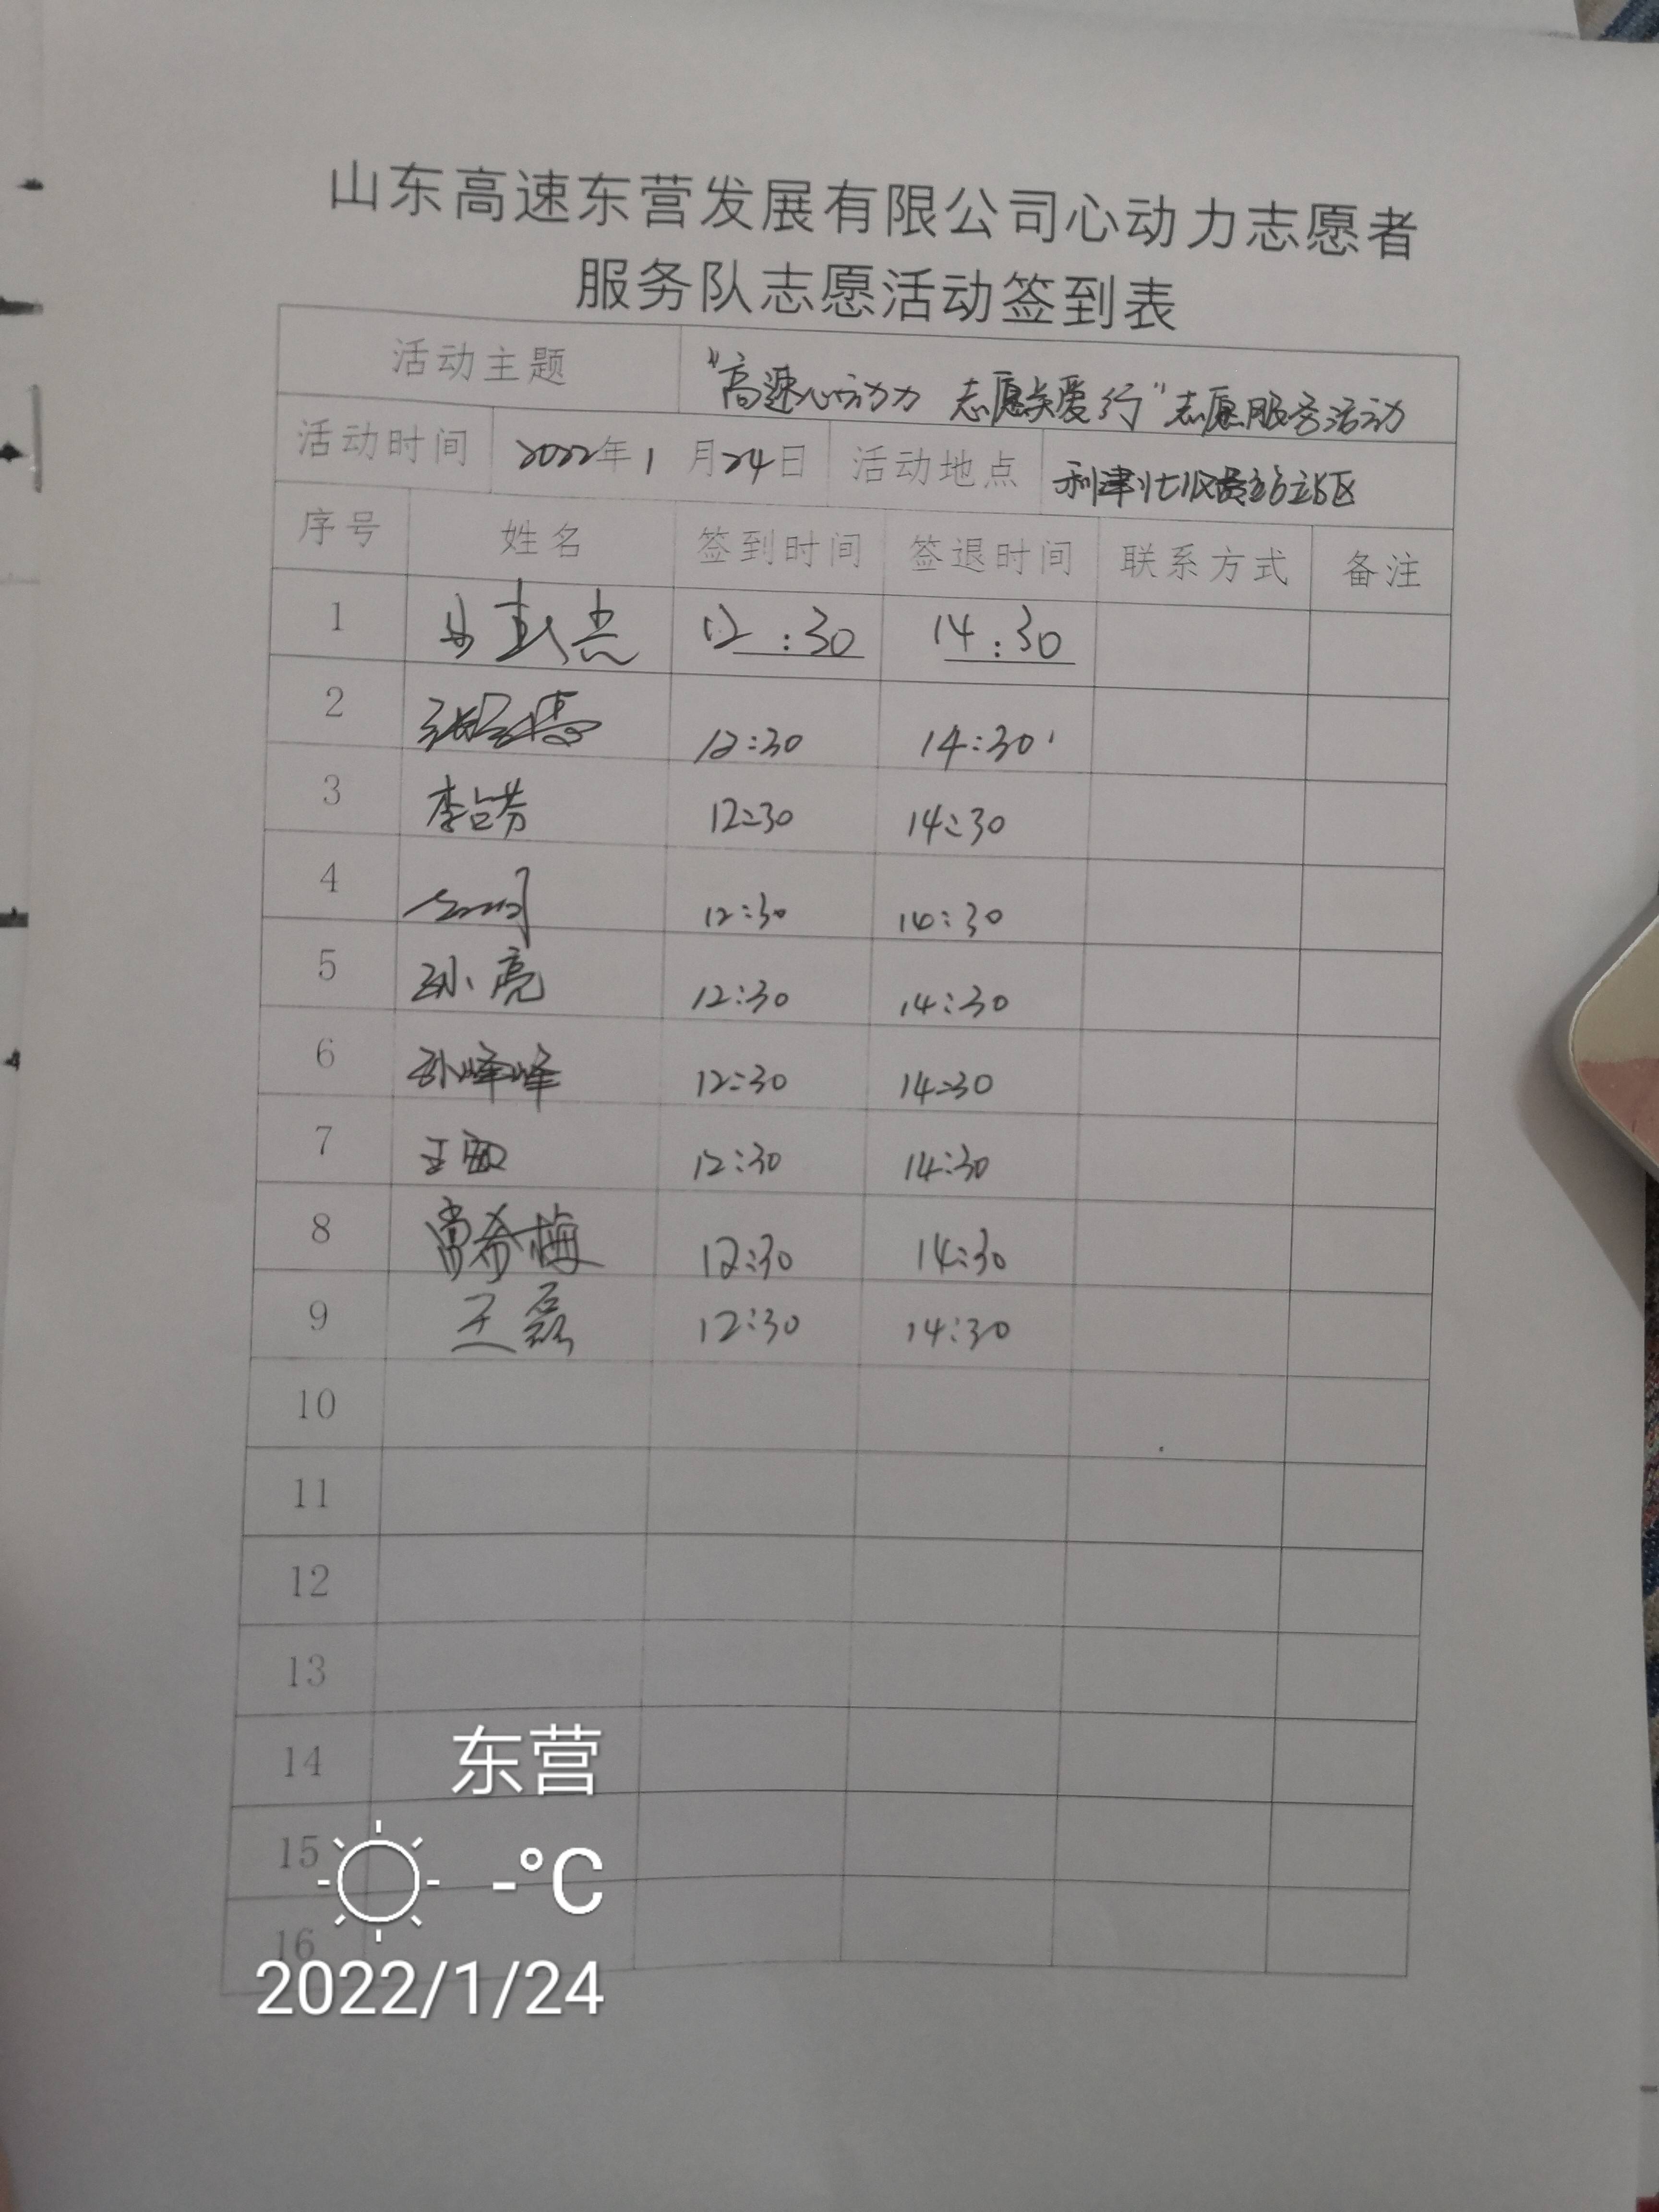 山东高速东营发展有限公司心动力志愿者
服务队志愿活动签到表
活动主题 "高速心动力 志愿关爱行"志愿服务活动
活动时间 2022年1月24日 活动地点 利津北收费站站区
序号 姓名 签到时间 签退时间 联系方式 备注
1 12:30 14:30
2 12:30 14:30
3 李占芳 12:30 14:30
4 12:30 14:30
5 孙亮 12:30 14:30
6 孙峰峰 12:30 14:30
7 王 12:30 14:30
8 常希梅 12:30 14:30
9 王磊 12:30 14:30
10
11
12
13
14
15
16
东营
-°C
2022/1/24